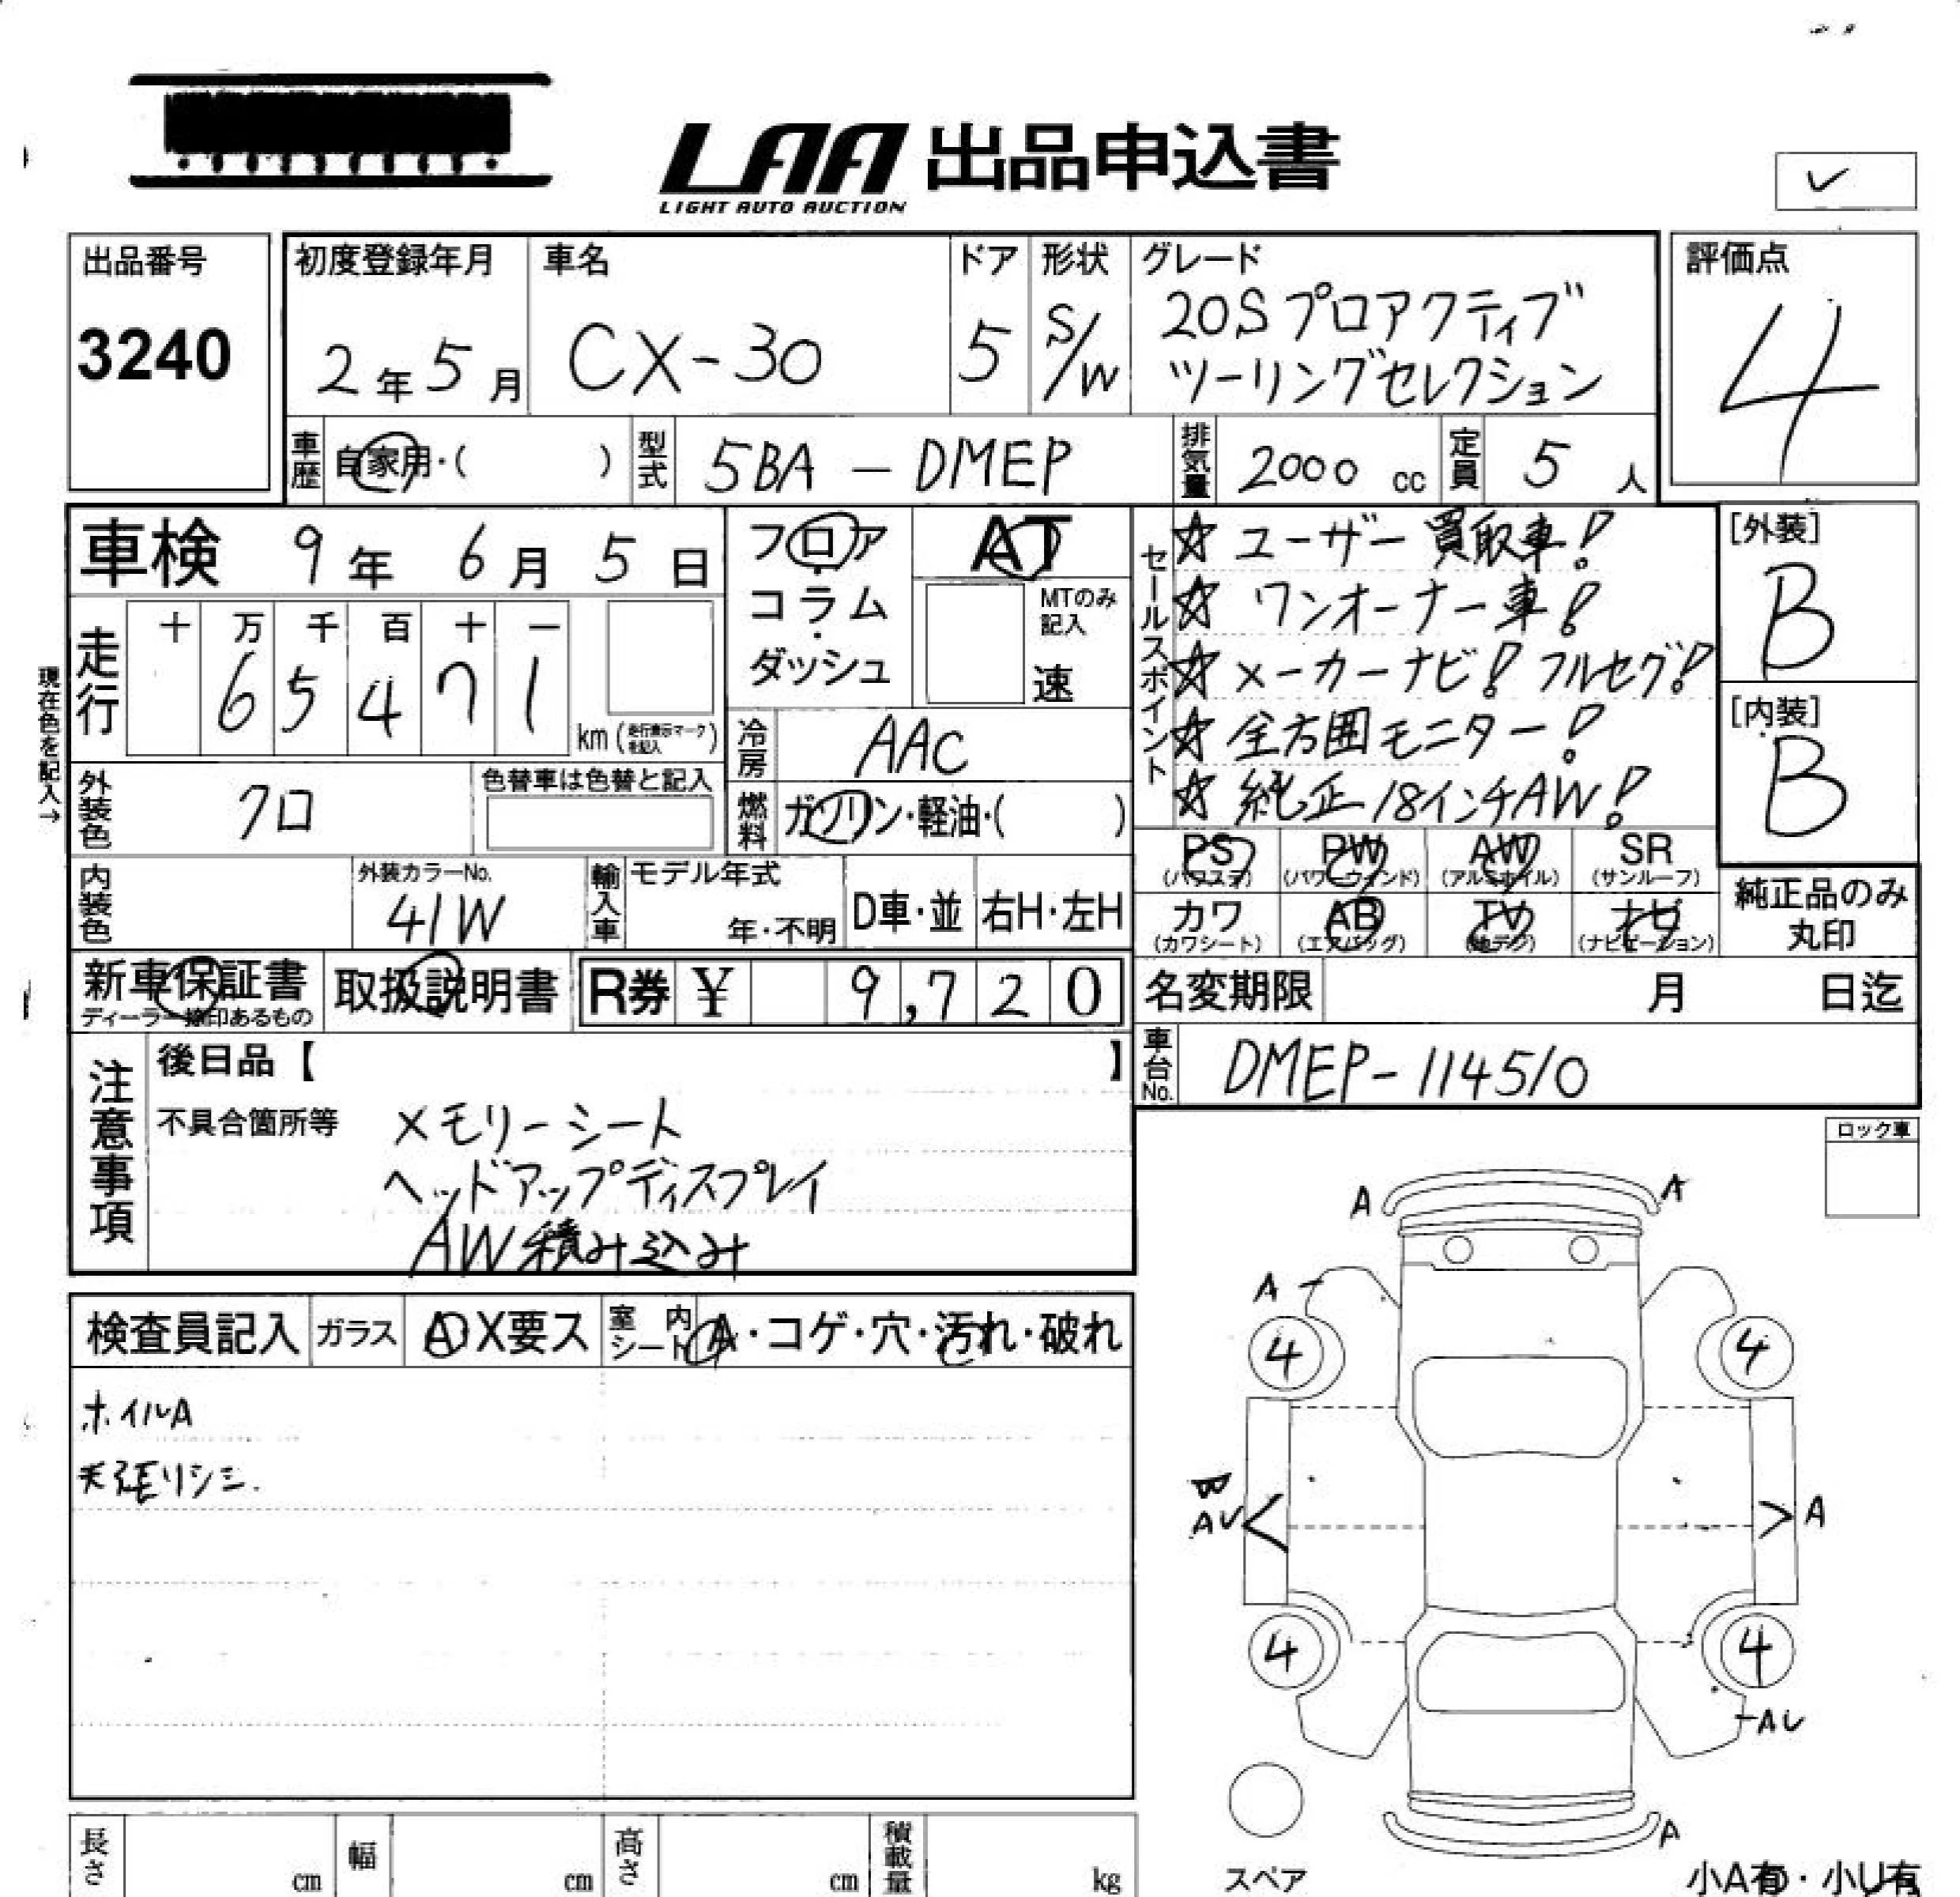 LAA 出品申込書
LIGHT AUTO AUCTION
出品番号
3240
初度登録年月
2年5月
車名
CX-30
ドア
5
形状
S/W
グレード
20Sプロアクティブ
ツーリングセレクション
評価点
4
車歴
自家用・( )
型式
5BA - DMEP
排気量
2000 cc
定員
5 人
車検 9年 6月 5日
フロア・コラム・ダッシュ
AT
MTのみ記入
速
セールスポイント
☆ ユーザー買取車!
☆ ワンオーナー車!
☆ メーカーナビ! フルセグ!
☆ 全方囲モニター!
☆ 純正18インチAW!
[外装]
B
[内装]
B
現在色を記入→
走行
十 万 千 百 十 一
6 5 4 7 1
km (走行表示マークを記入)
冷房
AAC
燃料
ガソリン・軽油・( )
外装色
クロ
色替車は色替と記入
内装色
外装カラーNo.
41W
輸入車
モデル年式
年・不明
D車・並
右H・左H
PS (パワステ)
PW (パワーウィンド)
AW (アルミホイル)
SR (サンルーフ)
カワ (カワシート)
AB (エアバッグ)
TV (地デジ)
ナビ (ナビゲーション)
純正品のみ
丸印
新車保証書
ディーラー捺印あるもの
取扱説明書
R券 ¥ 9,720
名変期限 月 日迄
車台No.
DMEP-114510
注意事項
後日品【 】
不具合箇所等
メモリーシート
ヘッドアップディスプレイ
AW積み込み
ロック車
検査員記入
ガラス
A X要ス
室内シート
A・コゲ・穴・汚れ・破れ
ホイルA
天張リシミ.
A
A
A
4
4
B
AU
A
4
4
AU
A
スペア
小A有・小U有
長さ cm
幅 cm
高さ cm
積載量 kg